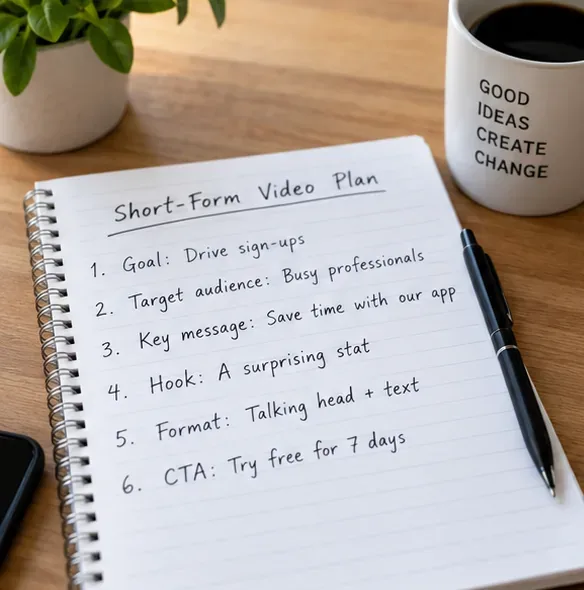 Short-Form Video Plan
1. Goal: Drive sign-ups
2. Target audience: Busy professionals
3. Key message: Save time with our app
4. Hook: A surprising stat
5. Format: Talking head + text
6. CTA: Try free for 7 days
GOOD
IDEAS
CREATE
CHANGE